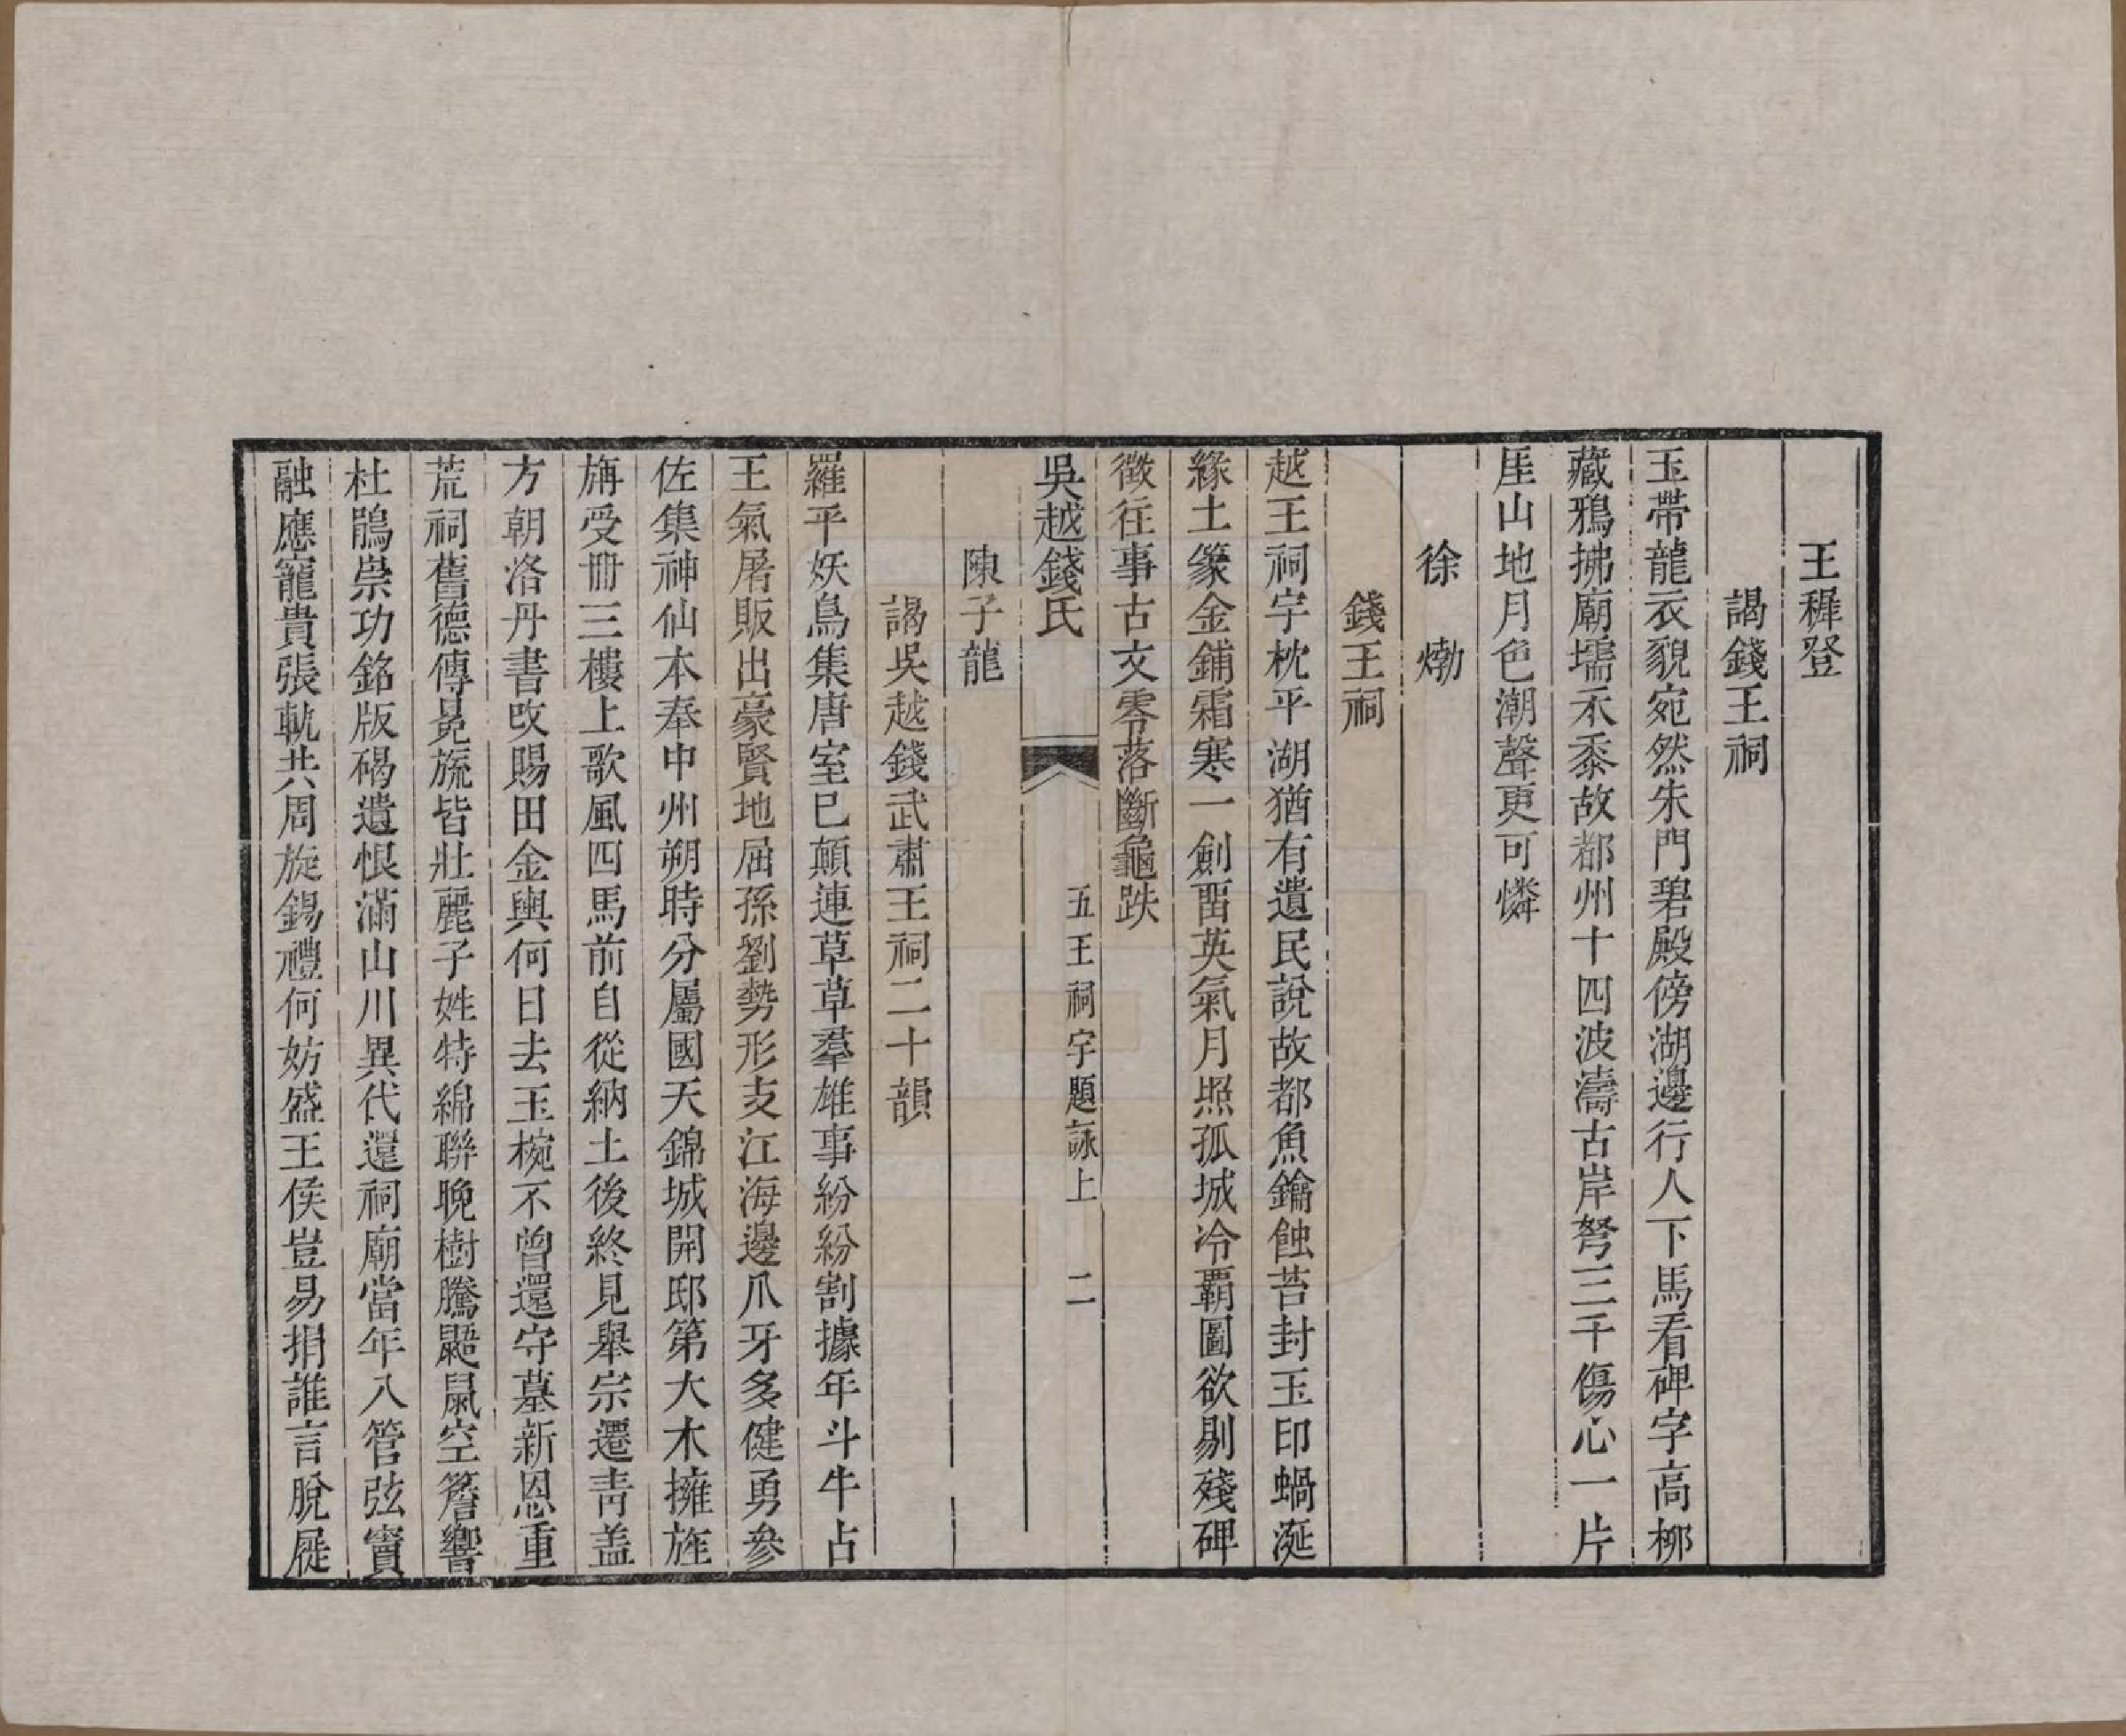 王穉登
謁錢王祠
玉帶龍衣貌宛然朱門碧殿傍湖邊行人下馬看碑字高柳
藏鴉拂廟壖禾黍故都州十四波濤古岸弩三千傷心一片
厓山地月色潮聲更可憐
徐𤊹
錢王祠
越王祠宇枕平湖猶有遺民說故都魚鑰蝕苔封玉印蝸涎
緣土篆金鋪霜寒一劍畱英氣月照孤城冷覇圖欲剔殘碑
徵往事古文零落斷龜趺
吳越錢氏
五王祠宇題詠上
二
陳子龍
謁吳越錢武肅王祠二十韻
羅平妖鳥集唐室已顛連草草羣雄事紛紛割據年斗牛占
王氣屠販出豪賢地屈孫劉勢形支江海邊爪牙多健勇參
佐集神仙本奉中州朔時分屬國天錦城開邸第大木擁旌
旃受冊三樓上歌風四馬前自從納土後終見舉宗遷靑盖
方朝洛丹書改賜田金輿何日去玉椀不曾還守墓新恩重
荒祠舊德傳冕旒皆壯麗子姓特綿聯晚樹騰鼯鼠空簷響
杜鵑崇功銘版碣遺恨滿山川異代還祠廟當年入管弦竇
融應寵貴張軌共周旋錫禮何妨盛王侯豈易捐誰言脫屣